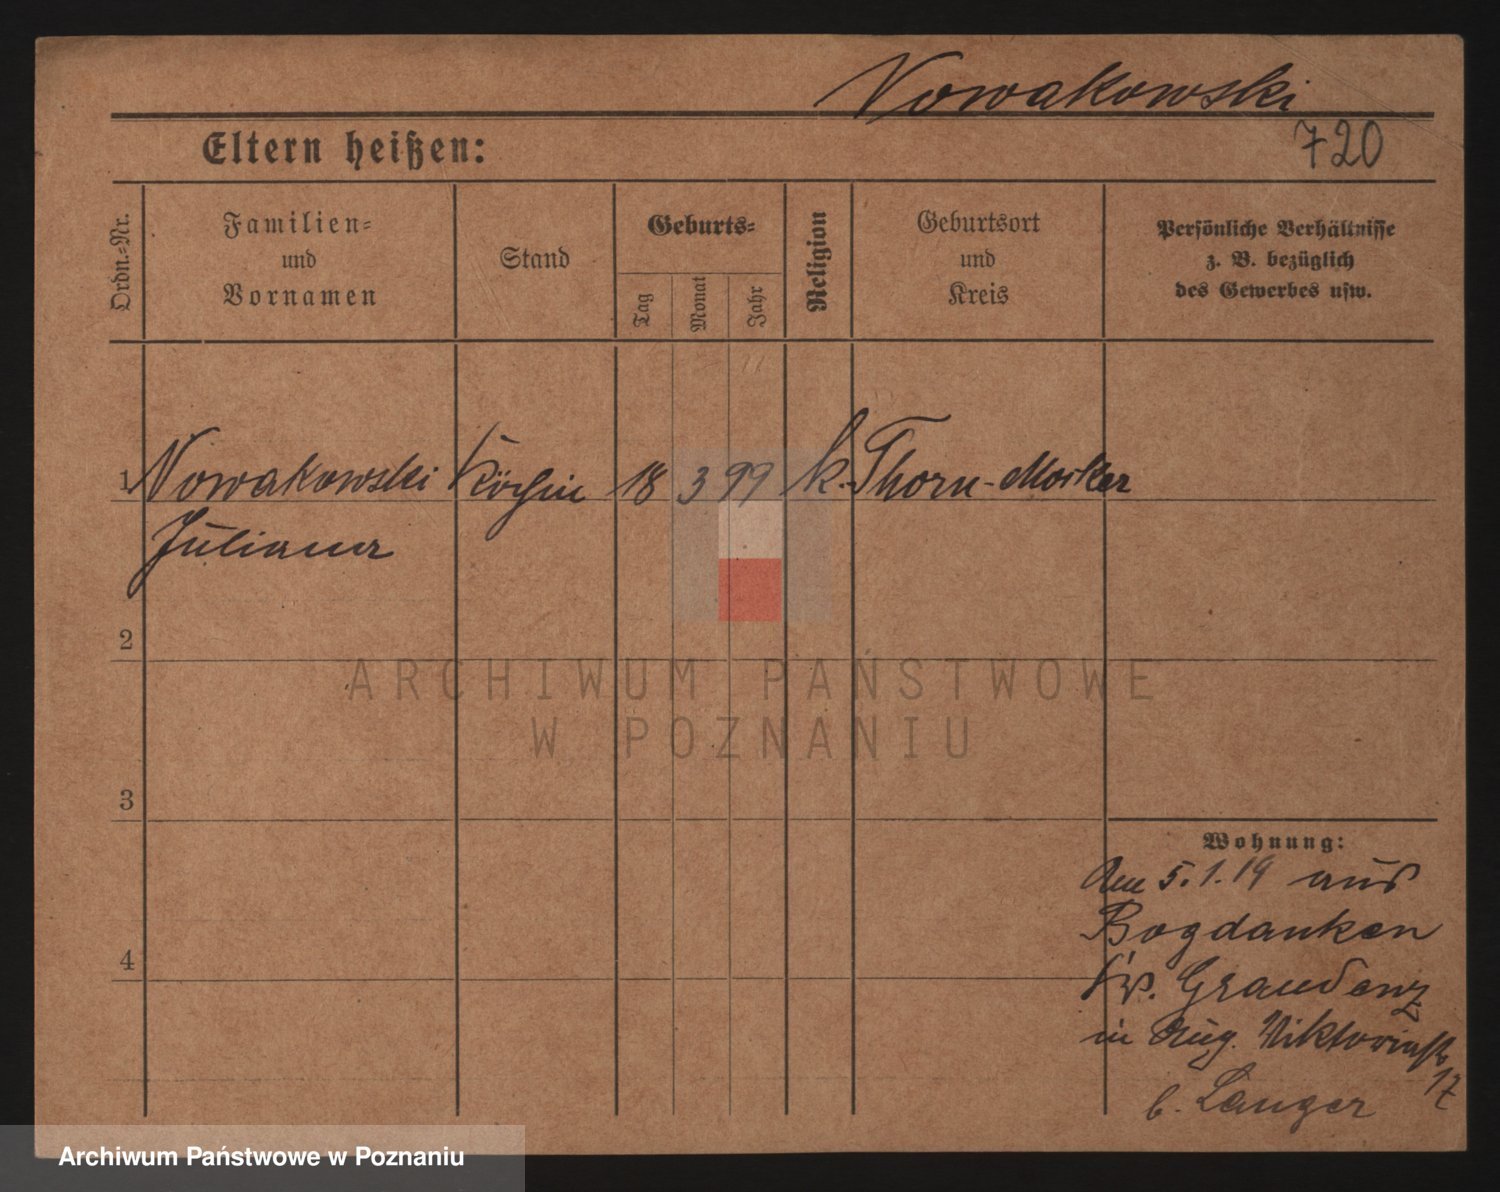 Nowakowski
720
Eltern heißen:
Ordn.-Nr.
Familien-
und
Vornamen
Stand
Geburts-
Tag
Monat
Jahr
Religion
Geburtsort
und
Kreis
Persönliche Verhältnisse
z. B. bezüglich
des Gewerbes usw.
1 Nowakowski Köchin 18 3 99 k. Thorn-Mocker
Juliana
2
ARCHIWUM PAŃSTWOWE
W POZNANIU
3
Wohnung:
Am 5.1.19 aus
Bogdanken
4
Kr. Graudenz
in Aug. Viktoriastr
17
b. Langer
Archiwum Państwowe w Poznaniu